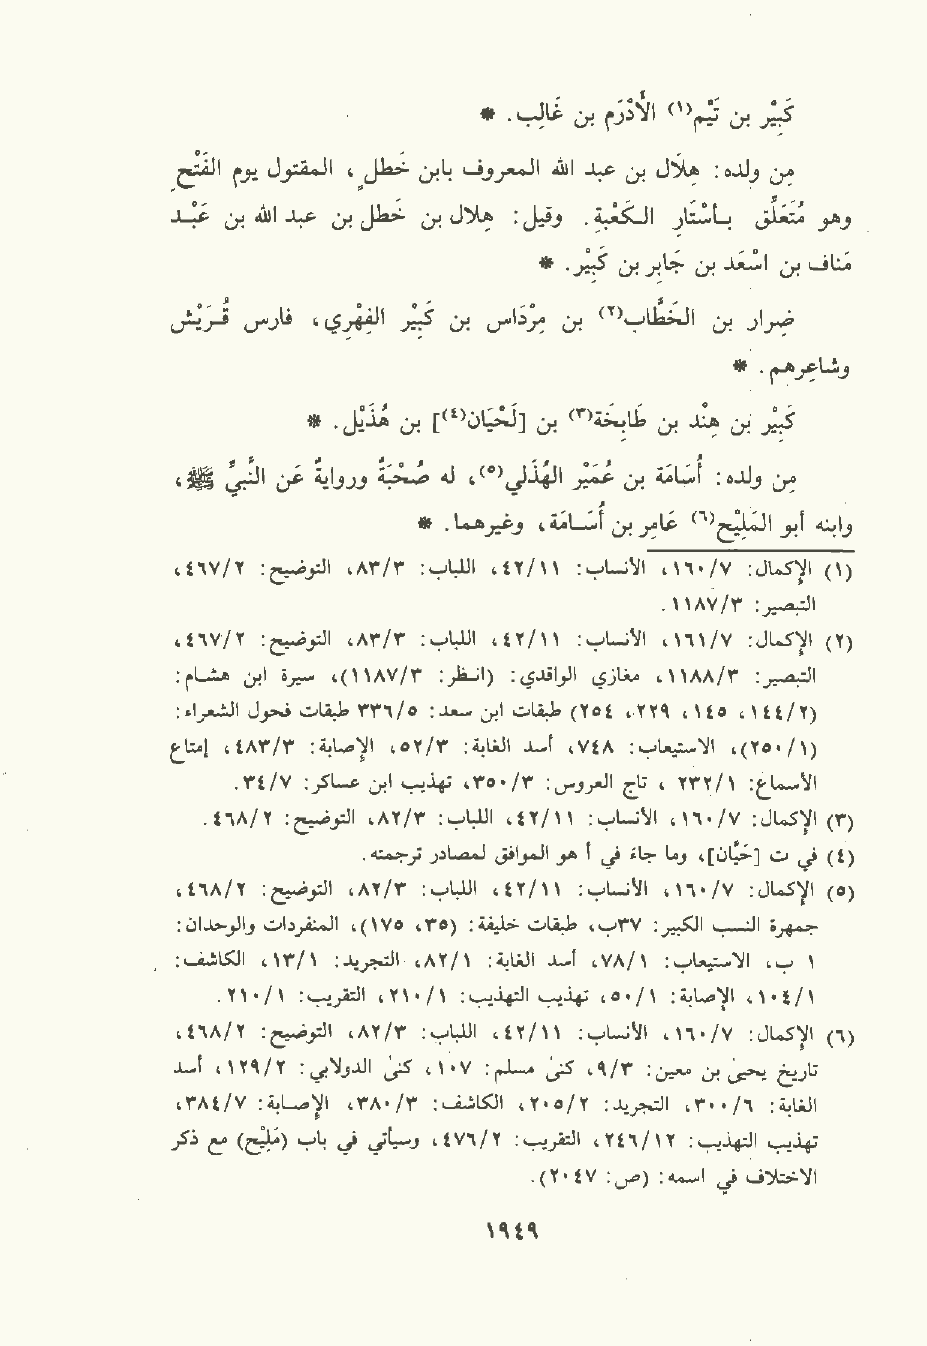 كَبِيْر بن تَيْم(١) الأَدْرَم بن غَالِب. *
مِن ولده: هِلَال بن عبد الله المعروف بابن خَطَل، المقتول يوم الفَتْح
وهو مُتَعَلِّق بأسْتَار الكَعْبة. وقيل: هلال بن خَطل بن عبد الله بن عَبْد
مَناف بن اسْعَد بن جَابِر بن كَبِيْر. *
ضِرار بن الخَطَّاب(٢) بن مِرْدَاس بن كَبِيْر الفِهْرِي، فارس قُرَيْش
وشاعِرهم. *
كَبِيْر بن هِنْد بن طَابِخَة(٣) بن [لَحْيَان(٤)] بن هُذَيْل. *
مِن ولده: أُسَامَة بن عُمَيْر الهُذَلي(٥)، له صُحْبَةٌ وروايةٌ عَن النَّبِيِّ ﷺ،
وابنه أبو المَلِيْح(٦) عَامِر بن أُسَامَة، وغيرهما. *
(١) الإِكمال: ١٦٠/٧، الأنساب: ٤٢/١١، اللباب: ٨٣/٣، التوضيح: ٤٦٧/٢،
التبصير: ١١٨٧/٣.
(٢) الإِكمال: ١٦١/٧، الأنساب: ٤٢/١١، اللباب: ٨٣/٣، التوضيح: ٤٦٧/٢،
التبصير: ١١٨٨/٣، مغازي الواقدي: (انظر: ١١٨٧/٣)، سيرة ابن هشام:
(١٤٤/٢، ١٤٥، ٢٢٩، ٢٥٤) طبقات ابن سعد: ٣٣٦/٥ طبقات فحول الشعراء:
(٢٥٠/١)، الاستيعاب: ٧٤٨، أسد الغابة: ٥٢/٣، الإِصابة: ٤٨٣/٣، إمتاع
الأسماع: ٢٣٢/١ ، تاج العروس: ٣٥٠/٣، تهذيب ابن عساكر: ٣٤/٧.
(٣) الإِكمال: ١٦٠/٧، الأنساب: ٤٢/١١، اللباب: ٨٢/٣، التوضيح: ٤٦٨/٢.
(٤) في ت [حَيَّان]، وما جاءَ في أ هو الموافق لمصادر ترجمته.
(٥) الإِكمال: ١٦٠/٧، الأنساب: ٤٢/١١، اللباب: ٨٢/٣، التوضيح: ٤٦٨/٢،
جمهرة النسب الكبير: ٣٧ب، طبقات خليفة: (٣٥، ١٧٥)، المنفردات والوحدان:
١ ب، الاستيعاب: ٧٨/١، أسد الغابة: ٨٢/١، التجريد: ١٣/١، الكاشف:
١٠٤/١، الإِصابة: ٥٠/١، تهذيب التهذيب: ٢١٠/١، التقريب: ٢١٠/١.
(٦) الإِكمال: ١٦٠/٧، الأنساب: ٤٢/١١، اللباب: ٨٢/٣، التوضيح: ٤٦٨/٢،
تاريخ يحيىٰ بن معين: ٩/٣، كنىٰ مسلم: ١٠٧، كنىٰ الدولابي: ١٢٩/٢، أسد
الغابة: ٣٠٠/٦، التجريد: ٢٠٥/٢، الكاشف: ٣٨٠/٣، الإِصابة: ٣٨٤/٧،
تهذيب التهذيب: ٢٤٦/١٢، التقريب: ٤٧٦/٢، وسيأتي في باب (مَلِيْح) مع ذكر
الاختلاف في اسمه: (ص: ٢٠٤٧).
١٩٤٩